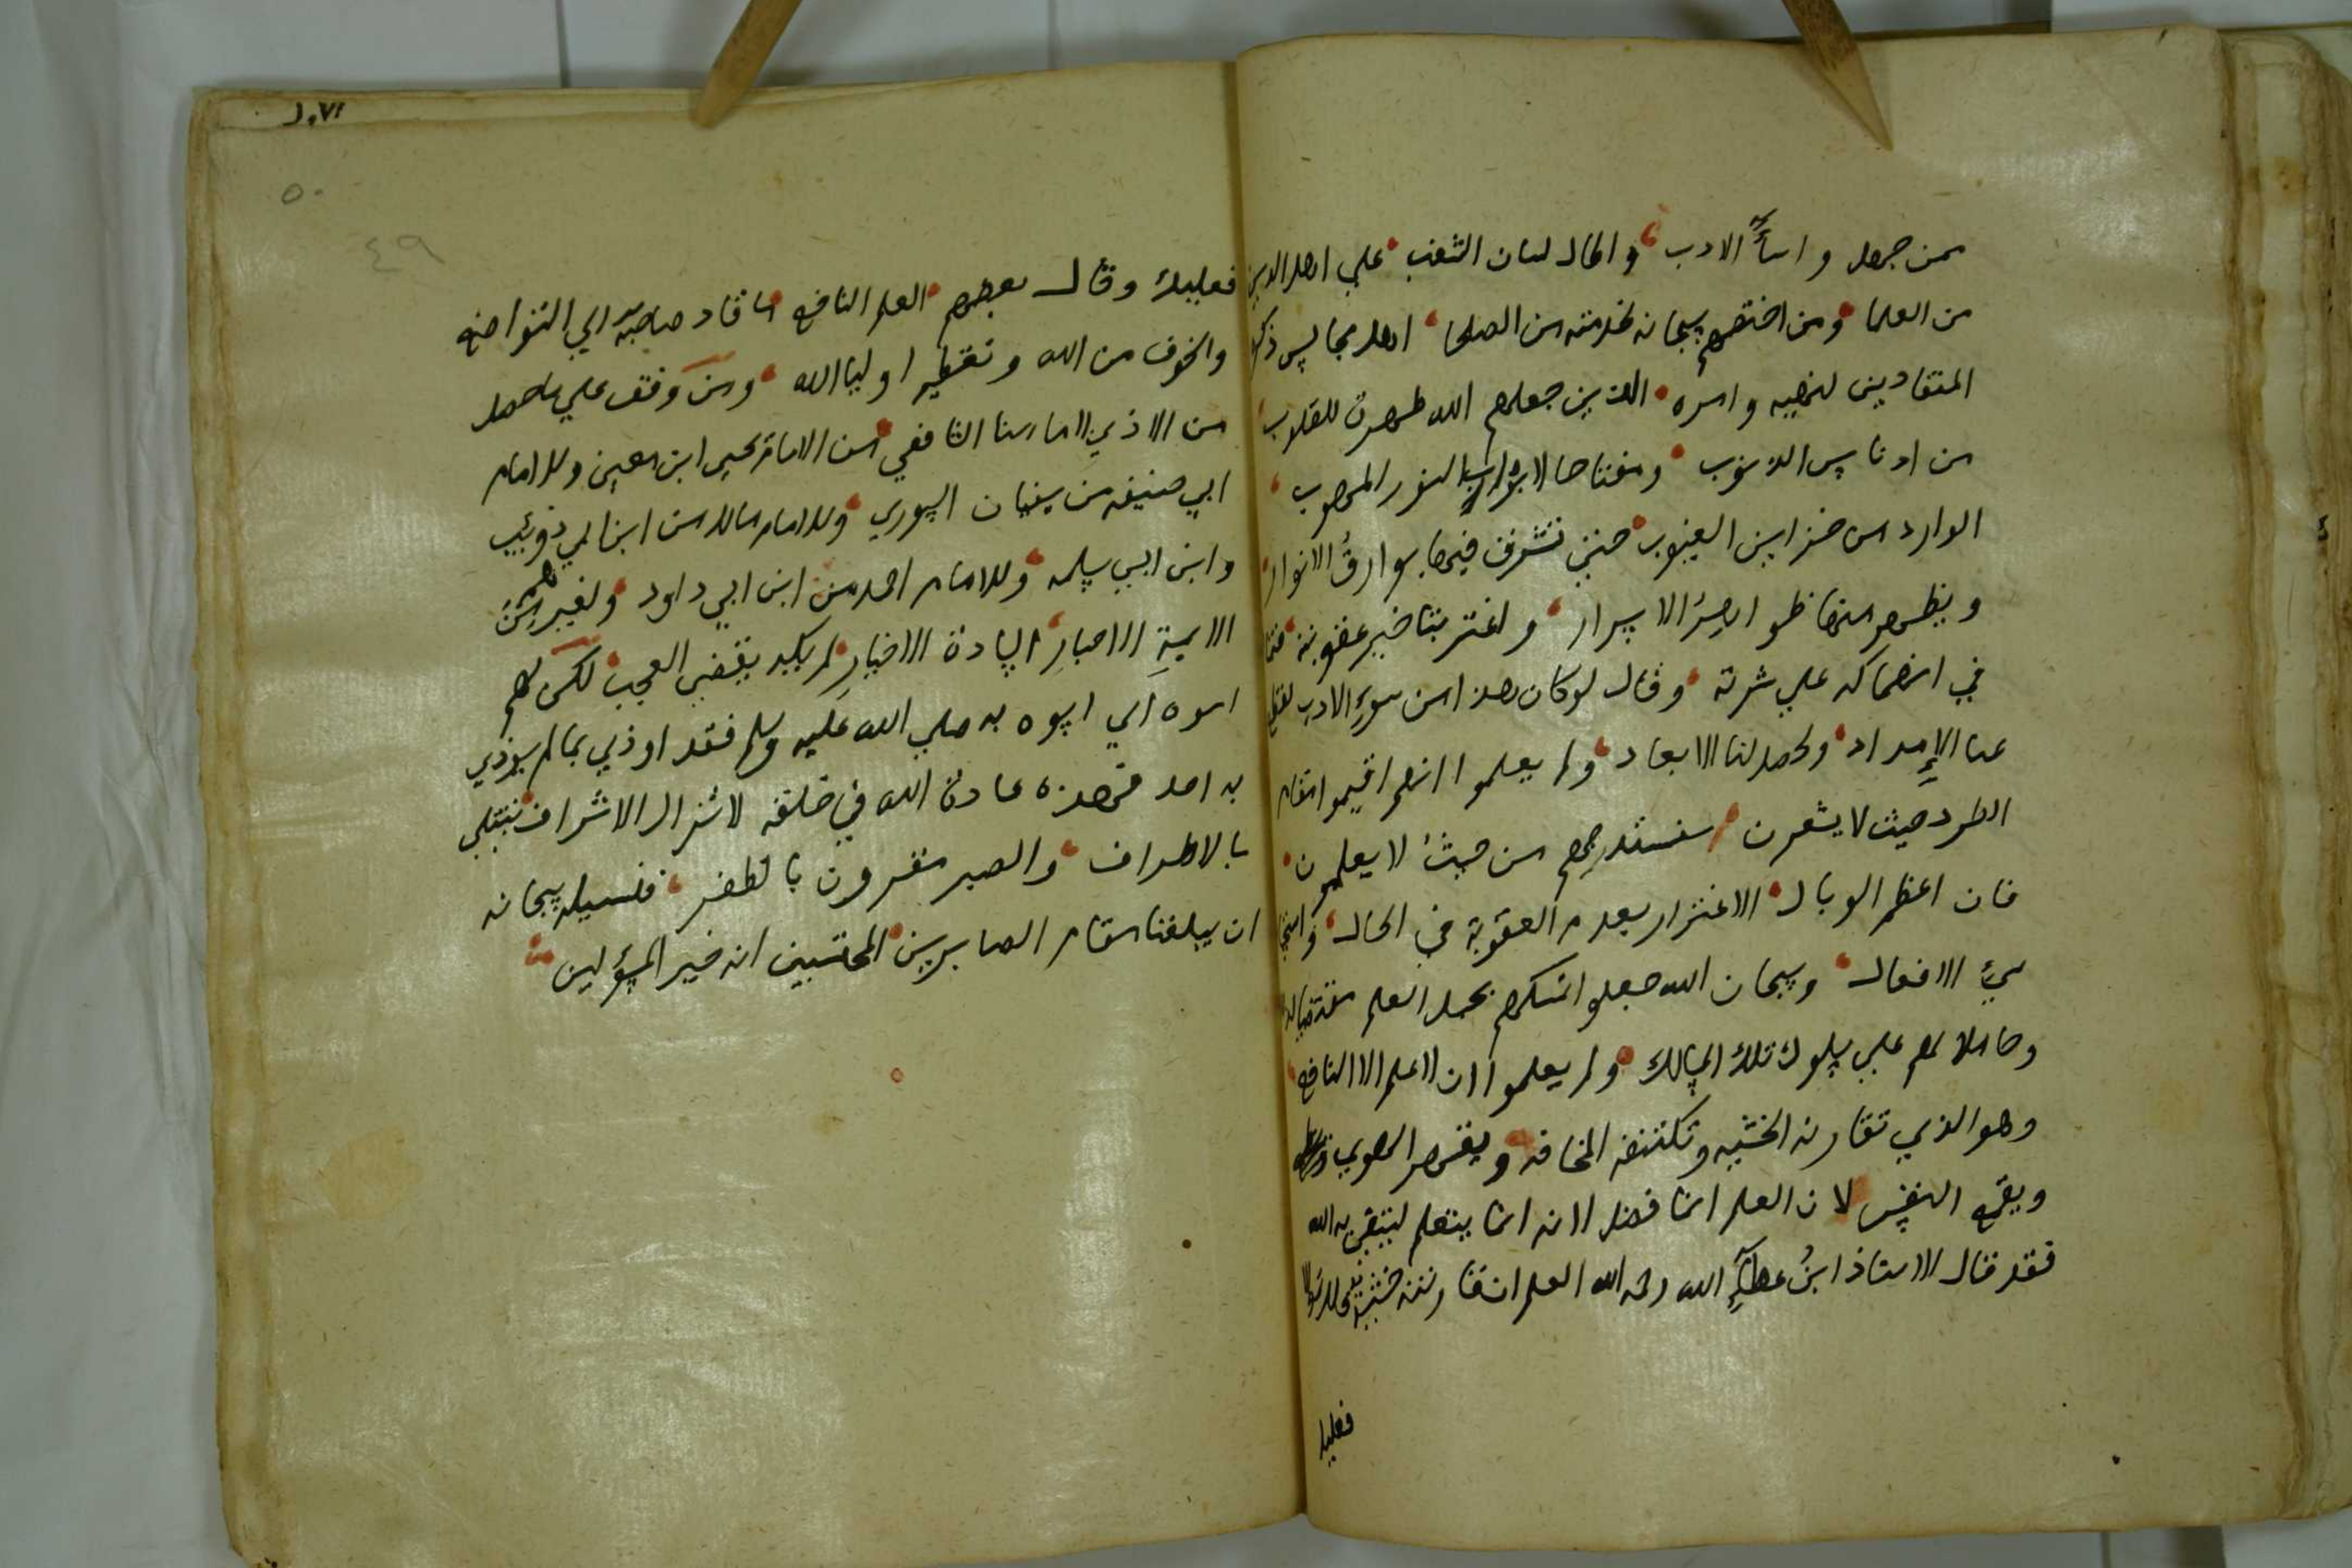 ممن جهل واساء الادب واطال لسان الثغب علي اهل الدين
من العلما ومن اختصهم سبحانه لخدمته من الصلحا اهل مجالس ذكره
المنقادين لنهيه وامره الذين جعلهم الله طهرة للقلوب
من ادناس الذنوب ومفتاحا لابواب النور الموهوب
الوارد من خزاين الغيوب حتي تشرق فيها بوارق الانوار
ويظهر منها ظواهر الاسرار واغتر بتاخير عقوبته
في انهماكه علي شرته وقال لو كان هذا من سوء الادب لقطع
عنا الامداد ولحصل لنا الابعاد ولم يعلموا انهم اقيموا مقام
الطرد حيث لا يشعرن سنستدرجهم من حيث لا يعلمون
فان اعظم الوبال الاغترار بعدم العقوبة في الحال
سيء الافعال وسبحان الله جعلوا تمسكهم بحمل العلم منقذا
وحاملا لهم علي سلوك تلك المسالك ولم يعلموا ان لا علم الا النافع
وهو الذي تقارنه الخشيه وتكتنفه المخافه ويقهر الهوي
ويقمع النفس لان العلم انما فضل لانه انما يتعلم ليتقي به الله
فقد قال الاستاذ ابن عطاء الله رحمه الله العلم ان قارنته خشية فلك والا
فعليك
٥٠
٤٩
فعليك وقال بعضهم العلم النافع ما قاد صاحبه الي التواضع
والخوف من الله وتعظيم اوليا الله ومن وقف علي ما حصل
من الاذي لامامنا الشافعي من الامام يحيي ابن معين وللامام
ابي حنيفه من سفيان الثوري وللامام مالك من ابن ابي ذويب
وابن ابي سلمه وللامام احمد من ابن ابي داود ولغيرهم من
الايمة الاحبار السادة الاخيار لم يكد يقضي العجب لكن لهم
اسوه اي اسوه به صلي الله عليه وسلم فقد اوذي بما لم يوذي
به احد فهذه عادة الله في خلقه لا تزال الاشراف تبتلي
بالاطراف والصبر مقرون بالظفر فنسيله سبحانه
ان يبلغنا مقام الصابرين المحتسبين انه خير المسؤلين